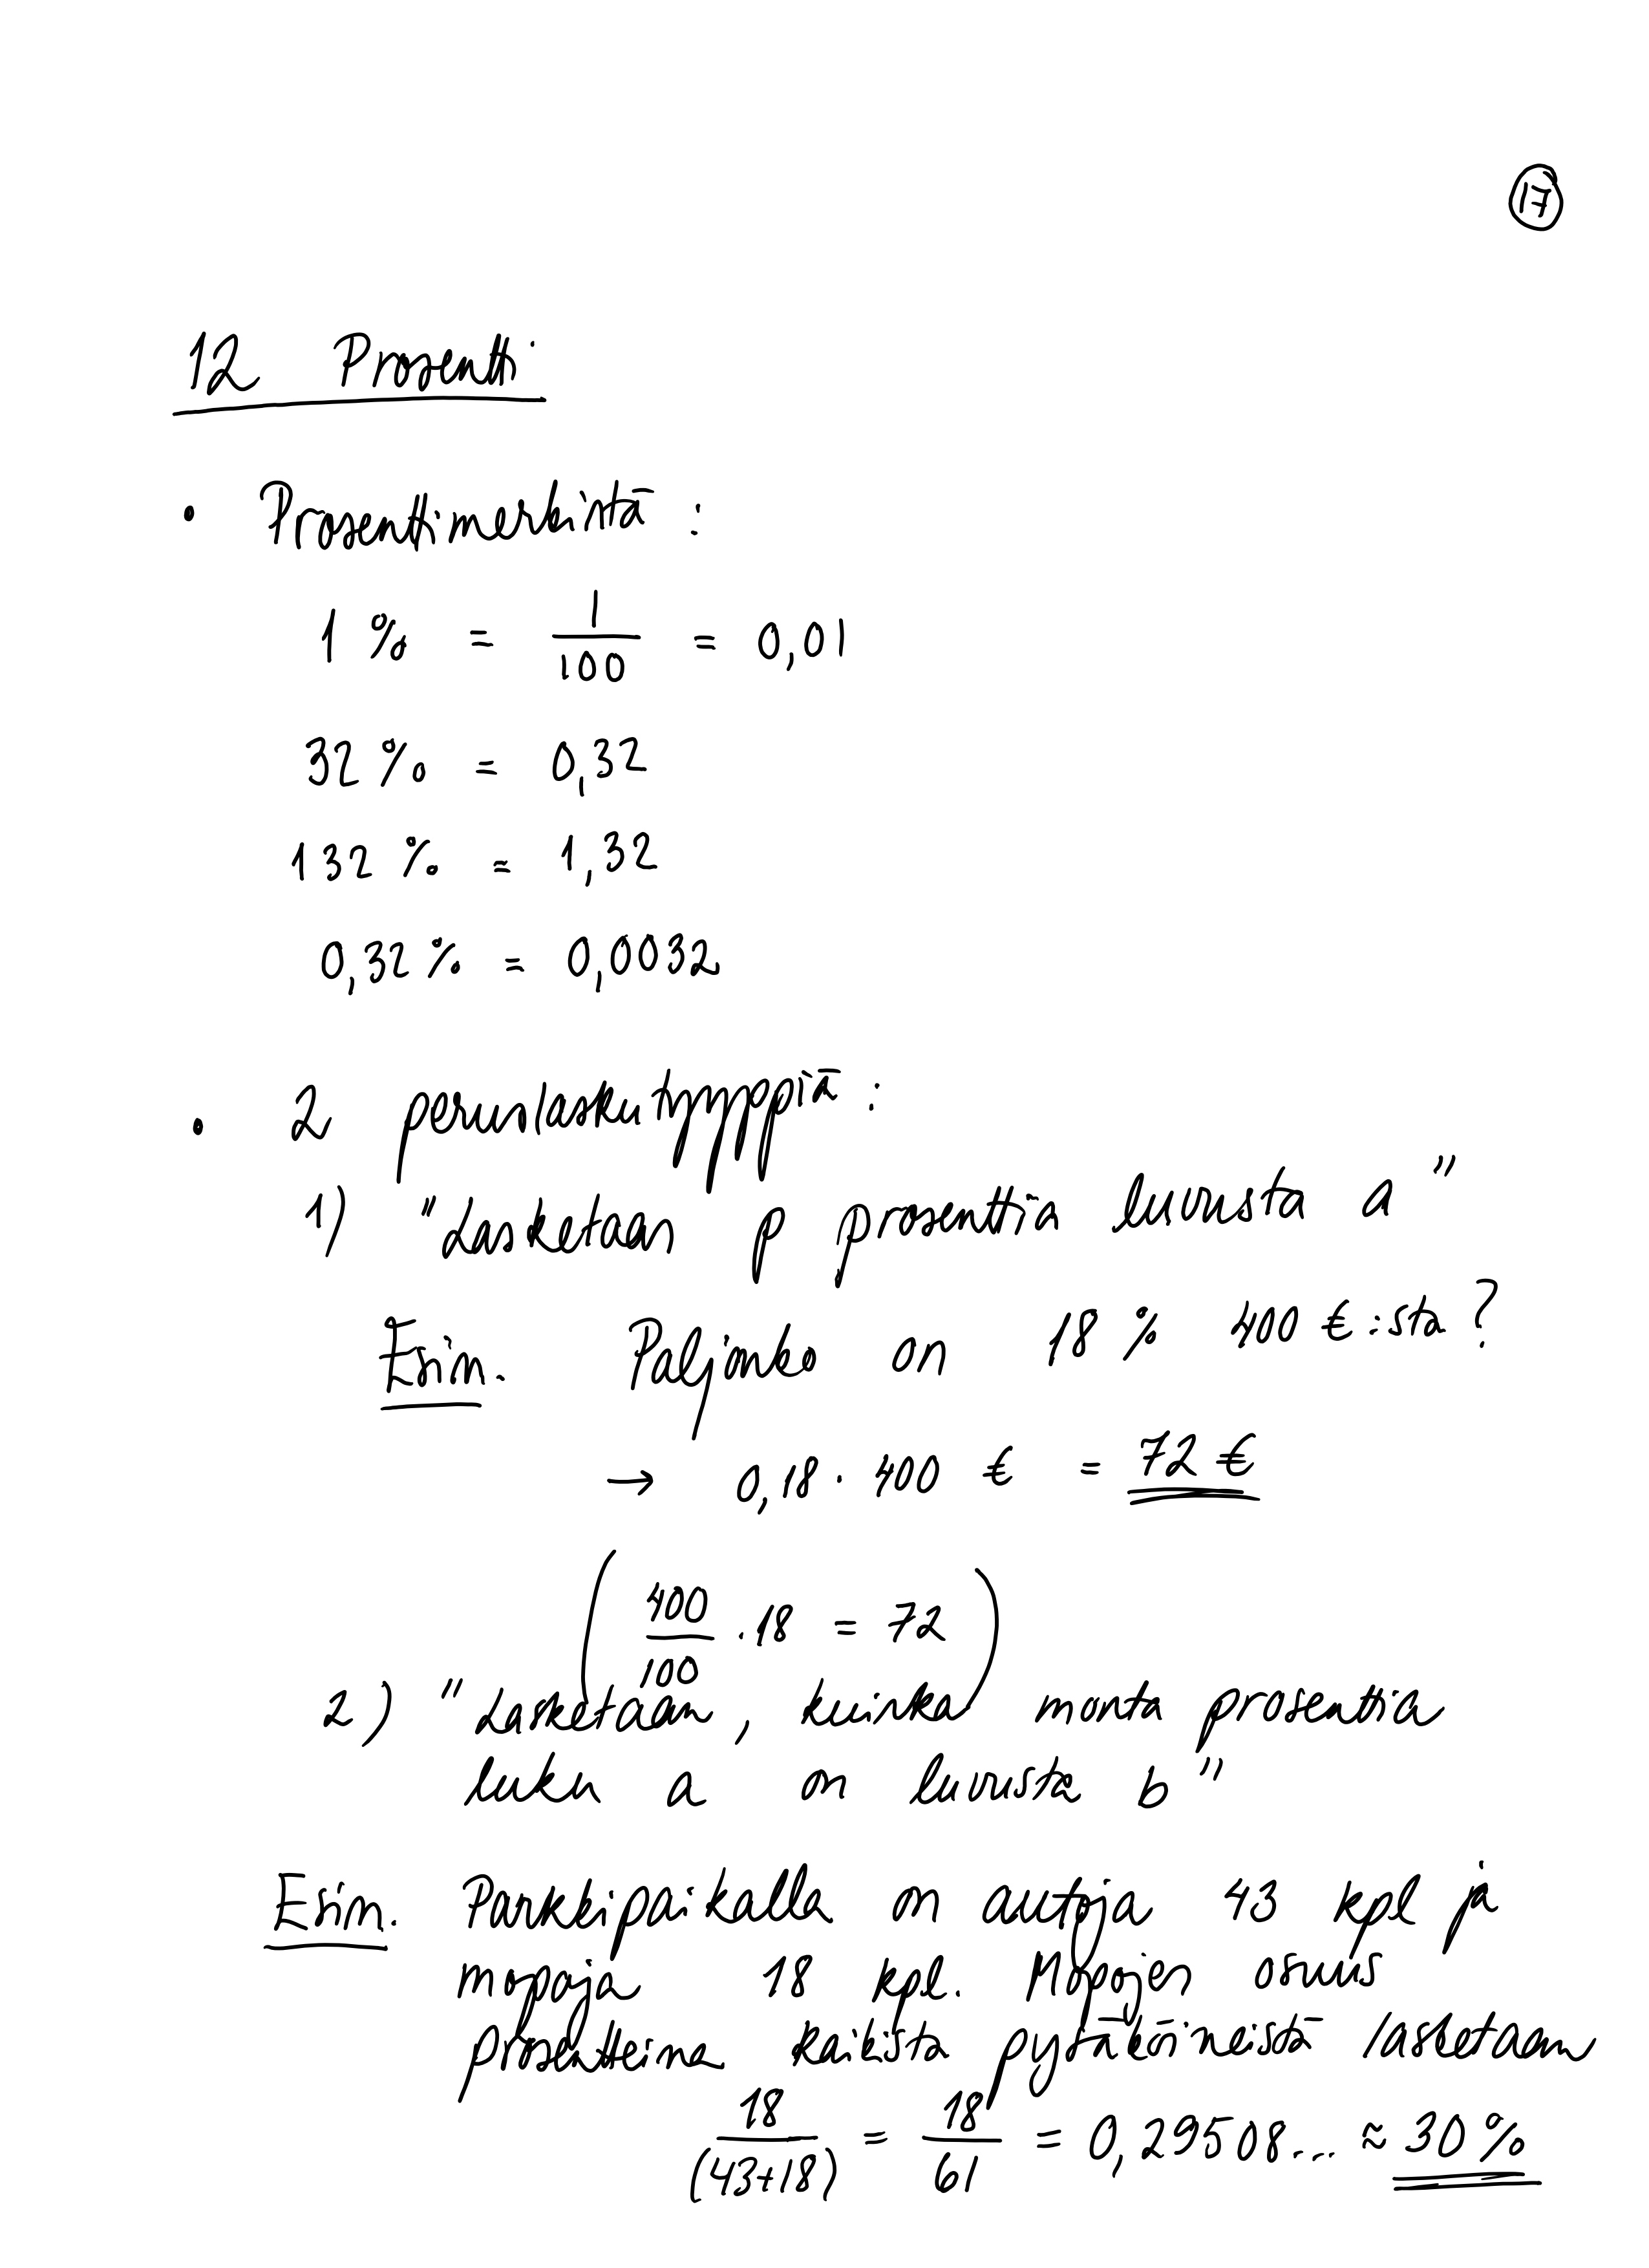 17
12 Prosentti
• Prosenttimerkistä :
1 % = 1/100 = 0,01
32 % = 0,32
132 % = 1,32
0,32 % = 0,0032
• 2 peruslaskutyyppiä :
1) "Lasketaan p prosenttia luvusta a"
Esim. Paljonko on 18 % 400 €:sta ?
→ 0,18 · 400 € = 72 €
( 400/100 · 18 = 72 )
2) "Lasketaan, kuinka monta prosenttia
luku a on luvusta b"
Esim. Parkkipaikalla on autoja 43 kpl ja
mopoja 18 kpl. Mopojen osuus
prosentteina kaikista pysäköineistä lasketaan
18/(43+18) = 18/61 = 0,29508... ≈ 30 %